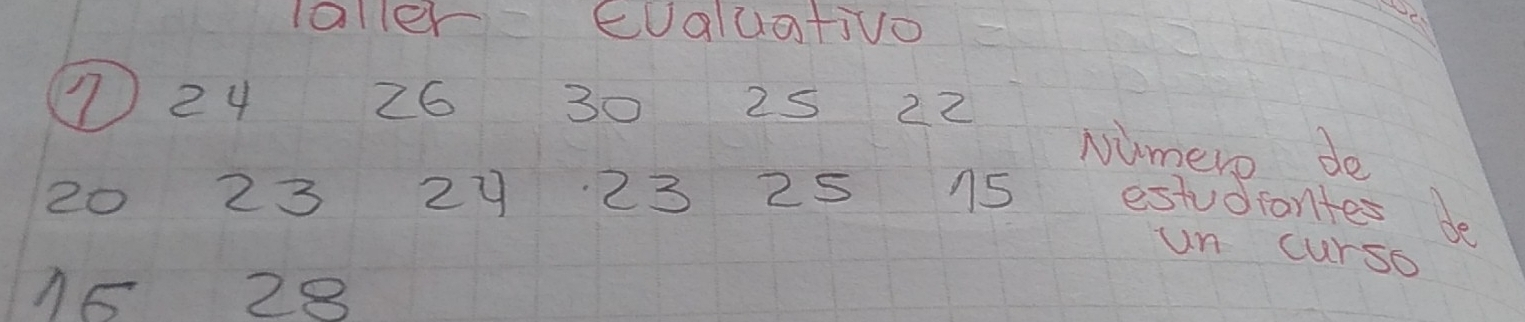 Taller Evaluativo
① 24 26 30 25 22
20 23 24 23 25 15
Número de
estudiantes de
un curso
16 28